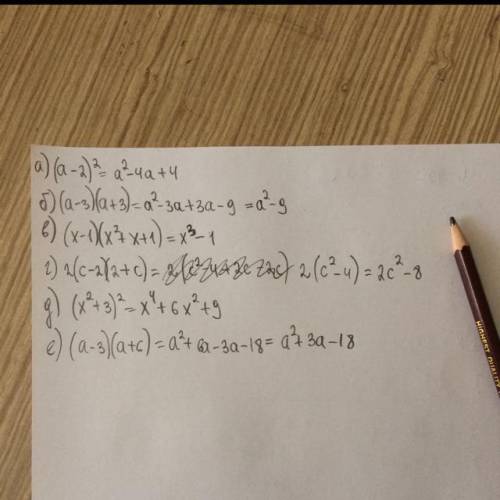 а) (a-2)² = a²-4a+4
б) (a-3)(a+3) = a²-3a+3a-9 = a²-9
в) (x-1)(x²+x+1) = x³-1
г) 2(c-2)(2+c) = 2(c²-4) = 2c²-8
д) (x²+3)² = x⁴+6x²+9
е) (a-3)(a+6) = a²+6a-3a-18 = a²+3a-18
HIGHEST QUALITY